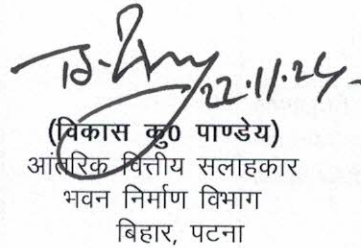 22.11.24
(विकास कु0 पाण्डेय)
आंतरिक वित्तीय सलाहकार
भवन निर्माण विभाग
बिहार, पटना